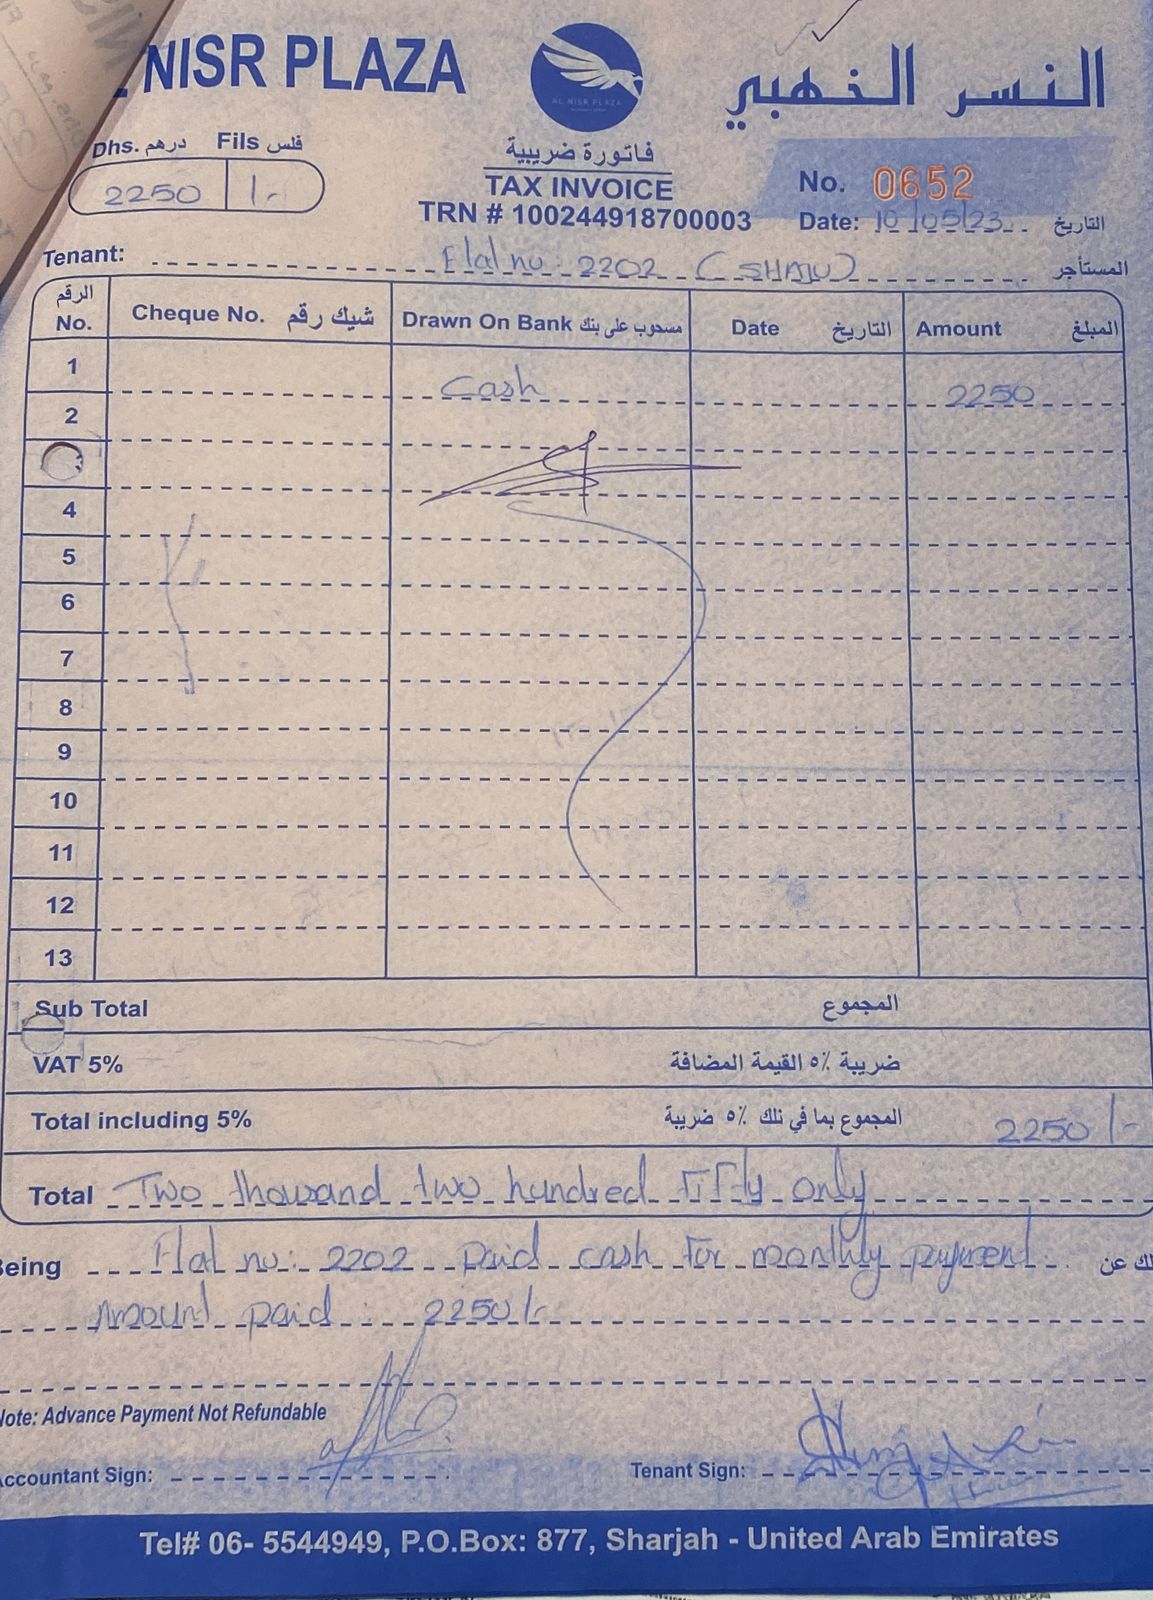 NISR PLAZA
AL NISR PLAZA
النسر الذهبي
Dhs. درهم Fils فلس
2250 /-
فاتورة ضريبية
TAX INVOICE
TRN # 100244918700003
No. 0652
Date: 10/05/23 التاريخ
Tenant: Flat no: 2202 (SHAJU) المستأجر
الرقم No. Cheque No. شيك رقم Drawn On Bank مسحوب على بنك Date التاريخ Amount المبلغ
1 Cash 2250
2
4
5
6
7
8
9
10
11
12
13
Sub Total المجموع
VAT 5% ضريبة ٥٪ القيمة المضافة
Total including 5% المجموع بما في ذلك ٥٪ ضريبة 2250/-
Total Two thousand two hundred Fifty only
Being Flat no: 2202 paid cash for monthly payment. ك عن
Amount paid : 2250/-
Note: Advance Payment Not Refundable
Accountant Sign: Tenant Sign:
Tel# 06- 5544949, P.O.Box: 877, Sharjah - United Arab Emirates